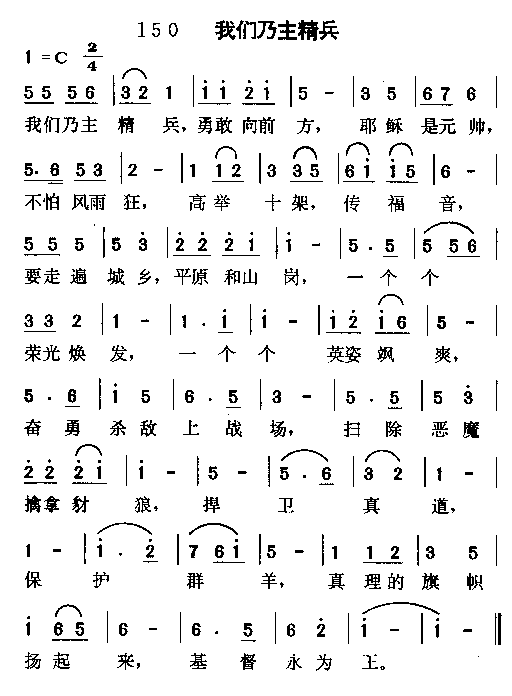 150 我们乃主精兵
1=C 2/4
55 56 | 32 1 | i i 2 i | 5 - | 3 5 | 67 6 |
我们乃主 精 兵,勇敢向前 方, 耶 稣 是元 帅,
5. 6 53 | 2 - | 1 12 | 3 35 | 6i i5 | 6 - |
不怕 风雨 狂, 高 举 十 架,传 福 音,
55 5 | 5 3 | 2 2 2 i | i - | 5 . 5 | 5 56 |
要走 遍 城 乡,平原 和山 岗, 一 个 个
33 2 | 1 - | 1 . i | i - | i 2 i6 | 5 - |
荣光 焕 发, 一 个 个 英姿 飒 爽,
5 . 6 | i 5 | 6 . 5 | 3 - | 5 . 5 | 5 3 |
奋 勇 杀 敌 上 战 场, 扫 除 恶 魔
2 2 2 i | i - | 5 - | 5 . 6 | 3 2 | 1 - |
擒拿 豺 狼, 捍 卫 真 道,
1 - | i . 2 | 7 6i | 5 - | 1 12 | 3 5 |
保 护 群 羊, 真 理的 旗 帜
i 65 | 6 - | 5 . 5 | 6 2 | i - | i - ‖
扬 起 来, 基 督 永 为 王。